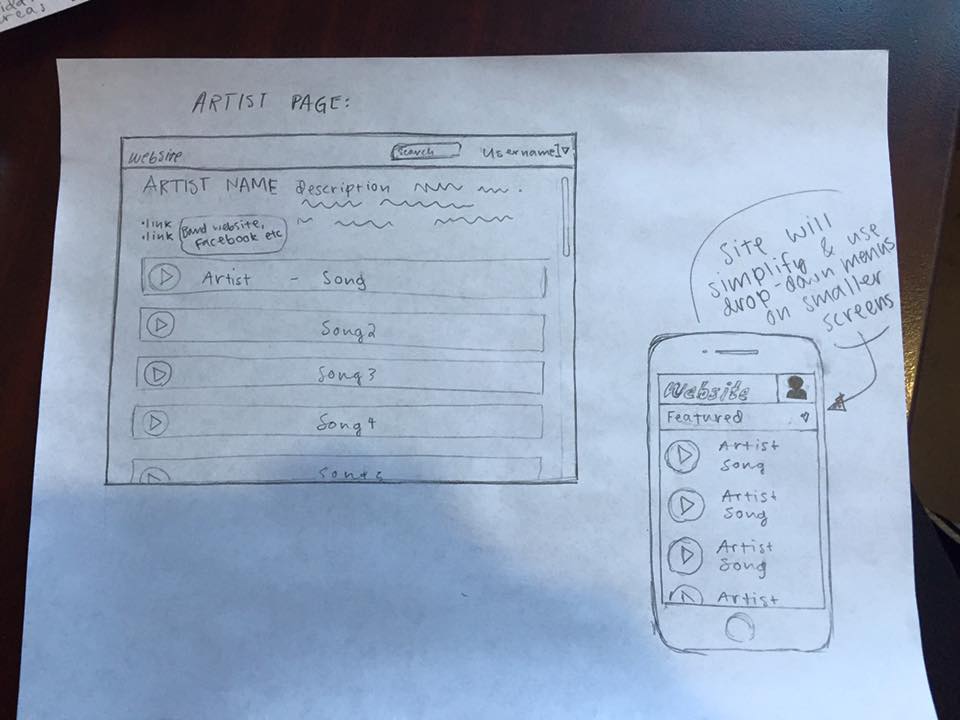 ARTIST PAGE:
Website
Search
Username
ARTIST NAME description
•link
•link
Band website,
Facebook etc
Artist - Song
Song2
Song 3
Song 4
Site will
simplify & use
drop-down menus
on smaller
screens
Website
Featured
Artist
Song
Artist
Song
Artist
Song
Artist